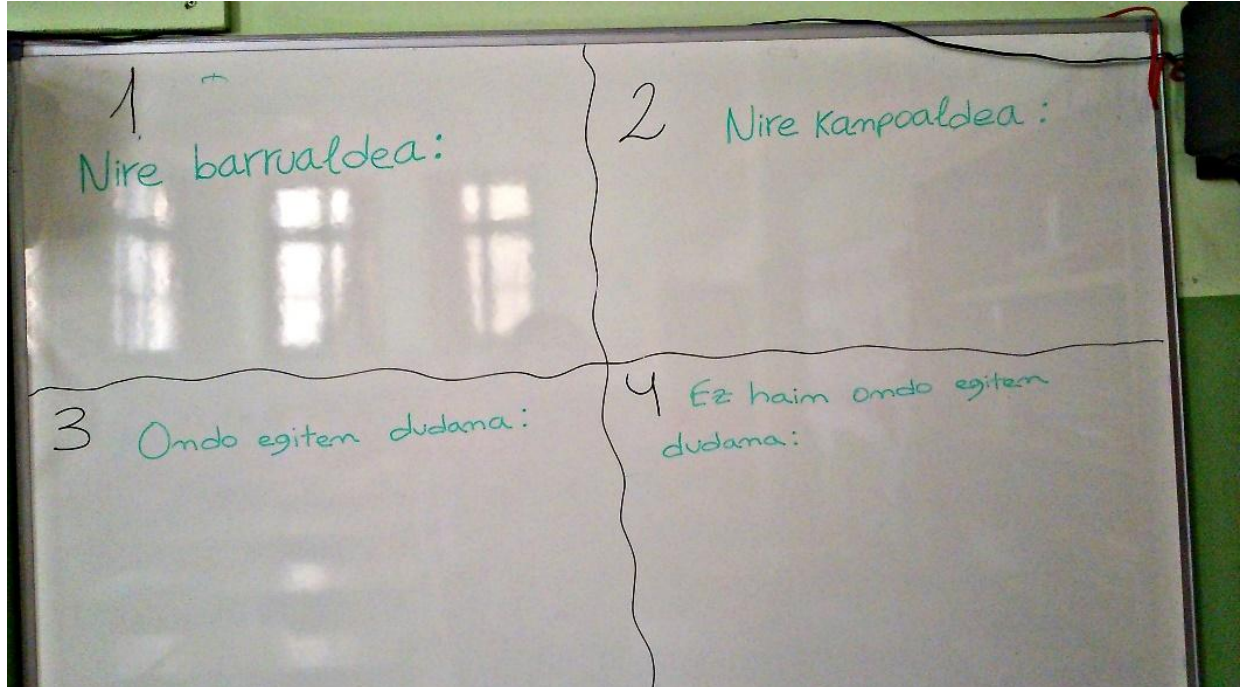 1
Nire barrualdea:
2
Nire kanpoaldea:
3
Ondo egiten dudana:
4
Ez hain ondo egiten
dudana: